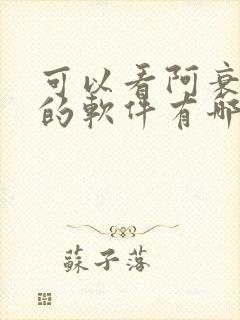 可以看阿衰
的軟件有哪
蘇子落